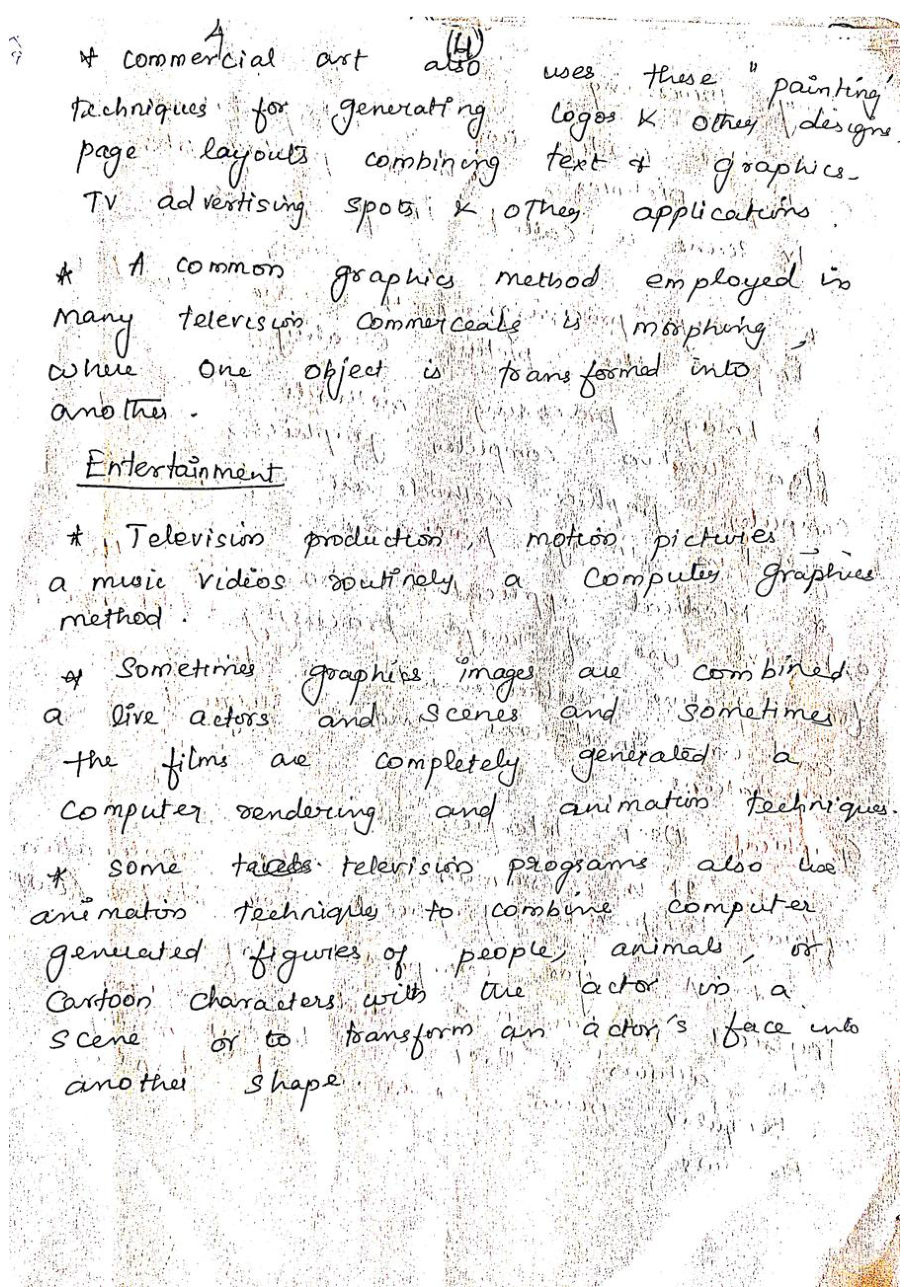 4
(4)
* commercial art also uses these "painting'
techniques for generating logos & other designs
page layouts combining text & graphics.
TV advertising spots & other applications
* A common graphics method employed in
many television commerceals is morphing,
where one object is transformed into
another.
Entertainment
* Television production, motion pictures
a music videos routinely a computer graphics
method.
* Sometimes graphics images are combined
a live actors and scenes and sometimes
the films are completely generated a
computer rendering and animation techniques.
* some television programs also use
animation techniques to combine computer
generated figures of people, animals, or
Cartoon characters with the actor in a
scene or to transform an actor's face into
another shape.